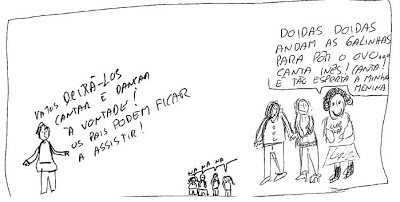 VAMOS DEIXÁ-LOS
CANTAR E DANÇAR
À VONTADE!
OS PAIS PODEM FICAR
A ASSISTIR!
NA NA NA
DOIDAS DOIDAS
ANDAM AS GALINHAS
PARA PÔR O OVO...
CANTA INÊS! CANTA!
É TÃO ESPERTA A MINHA
MENINA